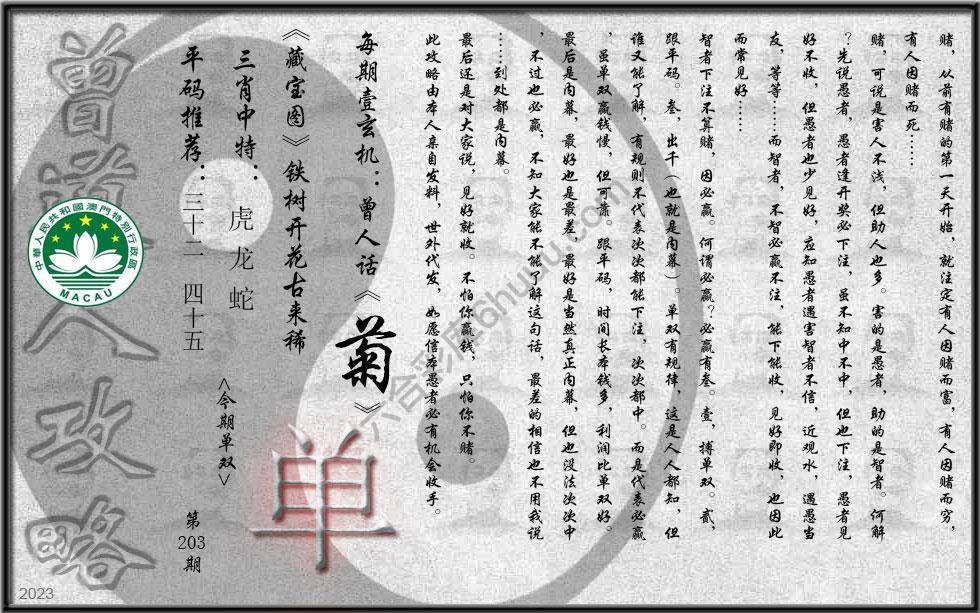 赌，从前有赌的第一天开始，就注定有人因赌而富，有人因赌而穷，
有人因赌而死……
赌，可说是害人不浅，但助人也多。害的是愚者，助的是智者。何解
？先说愚者，愚者逢开奖必下注，虽不知中不中，但也下注，愚者见
好不收，但愚者也少见好，应知愚者遇害智者不信，近观水，遇愚当
友，等等……而智者，不智必赢不注，能下能收，见好即收，也因此
而常见好……
智者下注不算赌，因必赢。何谓必赢？必赢有叁。壹，搏单双。贰，
跟平码。叁，出千（也就是内幕）。单双有规律，这是人人都知，但
谁又能了解，有规则不代表次次都能下注，次次都中。而是代表必赢
，虽单双赢钱慢，但可靠。跟平码，时间长本钱多，利润比单双好。
最后是内幕，最好也是最差，最好是当然真正内幕，但也没法次次中
，不过也必赢，不知大家能不能了解这句话，最差的相信也不用我说
……到处都是内幕。
最后还是对大家说，见好就收。不怕你赢钱，只怕你不赌。
此攻略由本人亲自发料，世外代发，如愿信本愚者必有机会收手。
每期壹玄机：曾人话《菊》
《藏宝图》铁树开花古来稀
三肖中特：虎龙蛇
平码推荐：三十二 四十五
<今期单双>
单
第203期
曾道人攻略
中華人民共和國澳門特別行政區
MACAU
六合彩库6huhu.com
2023